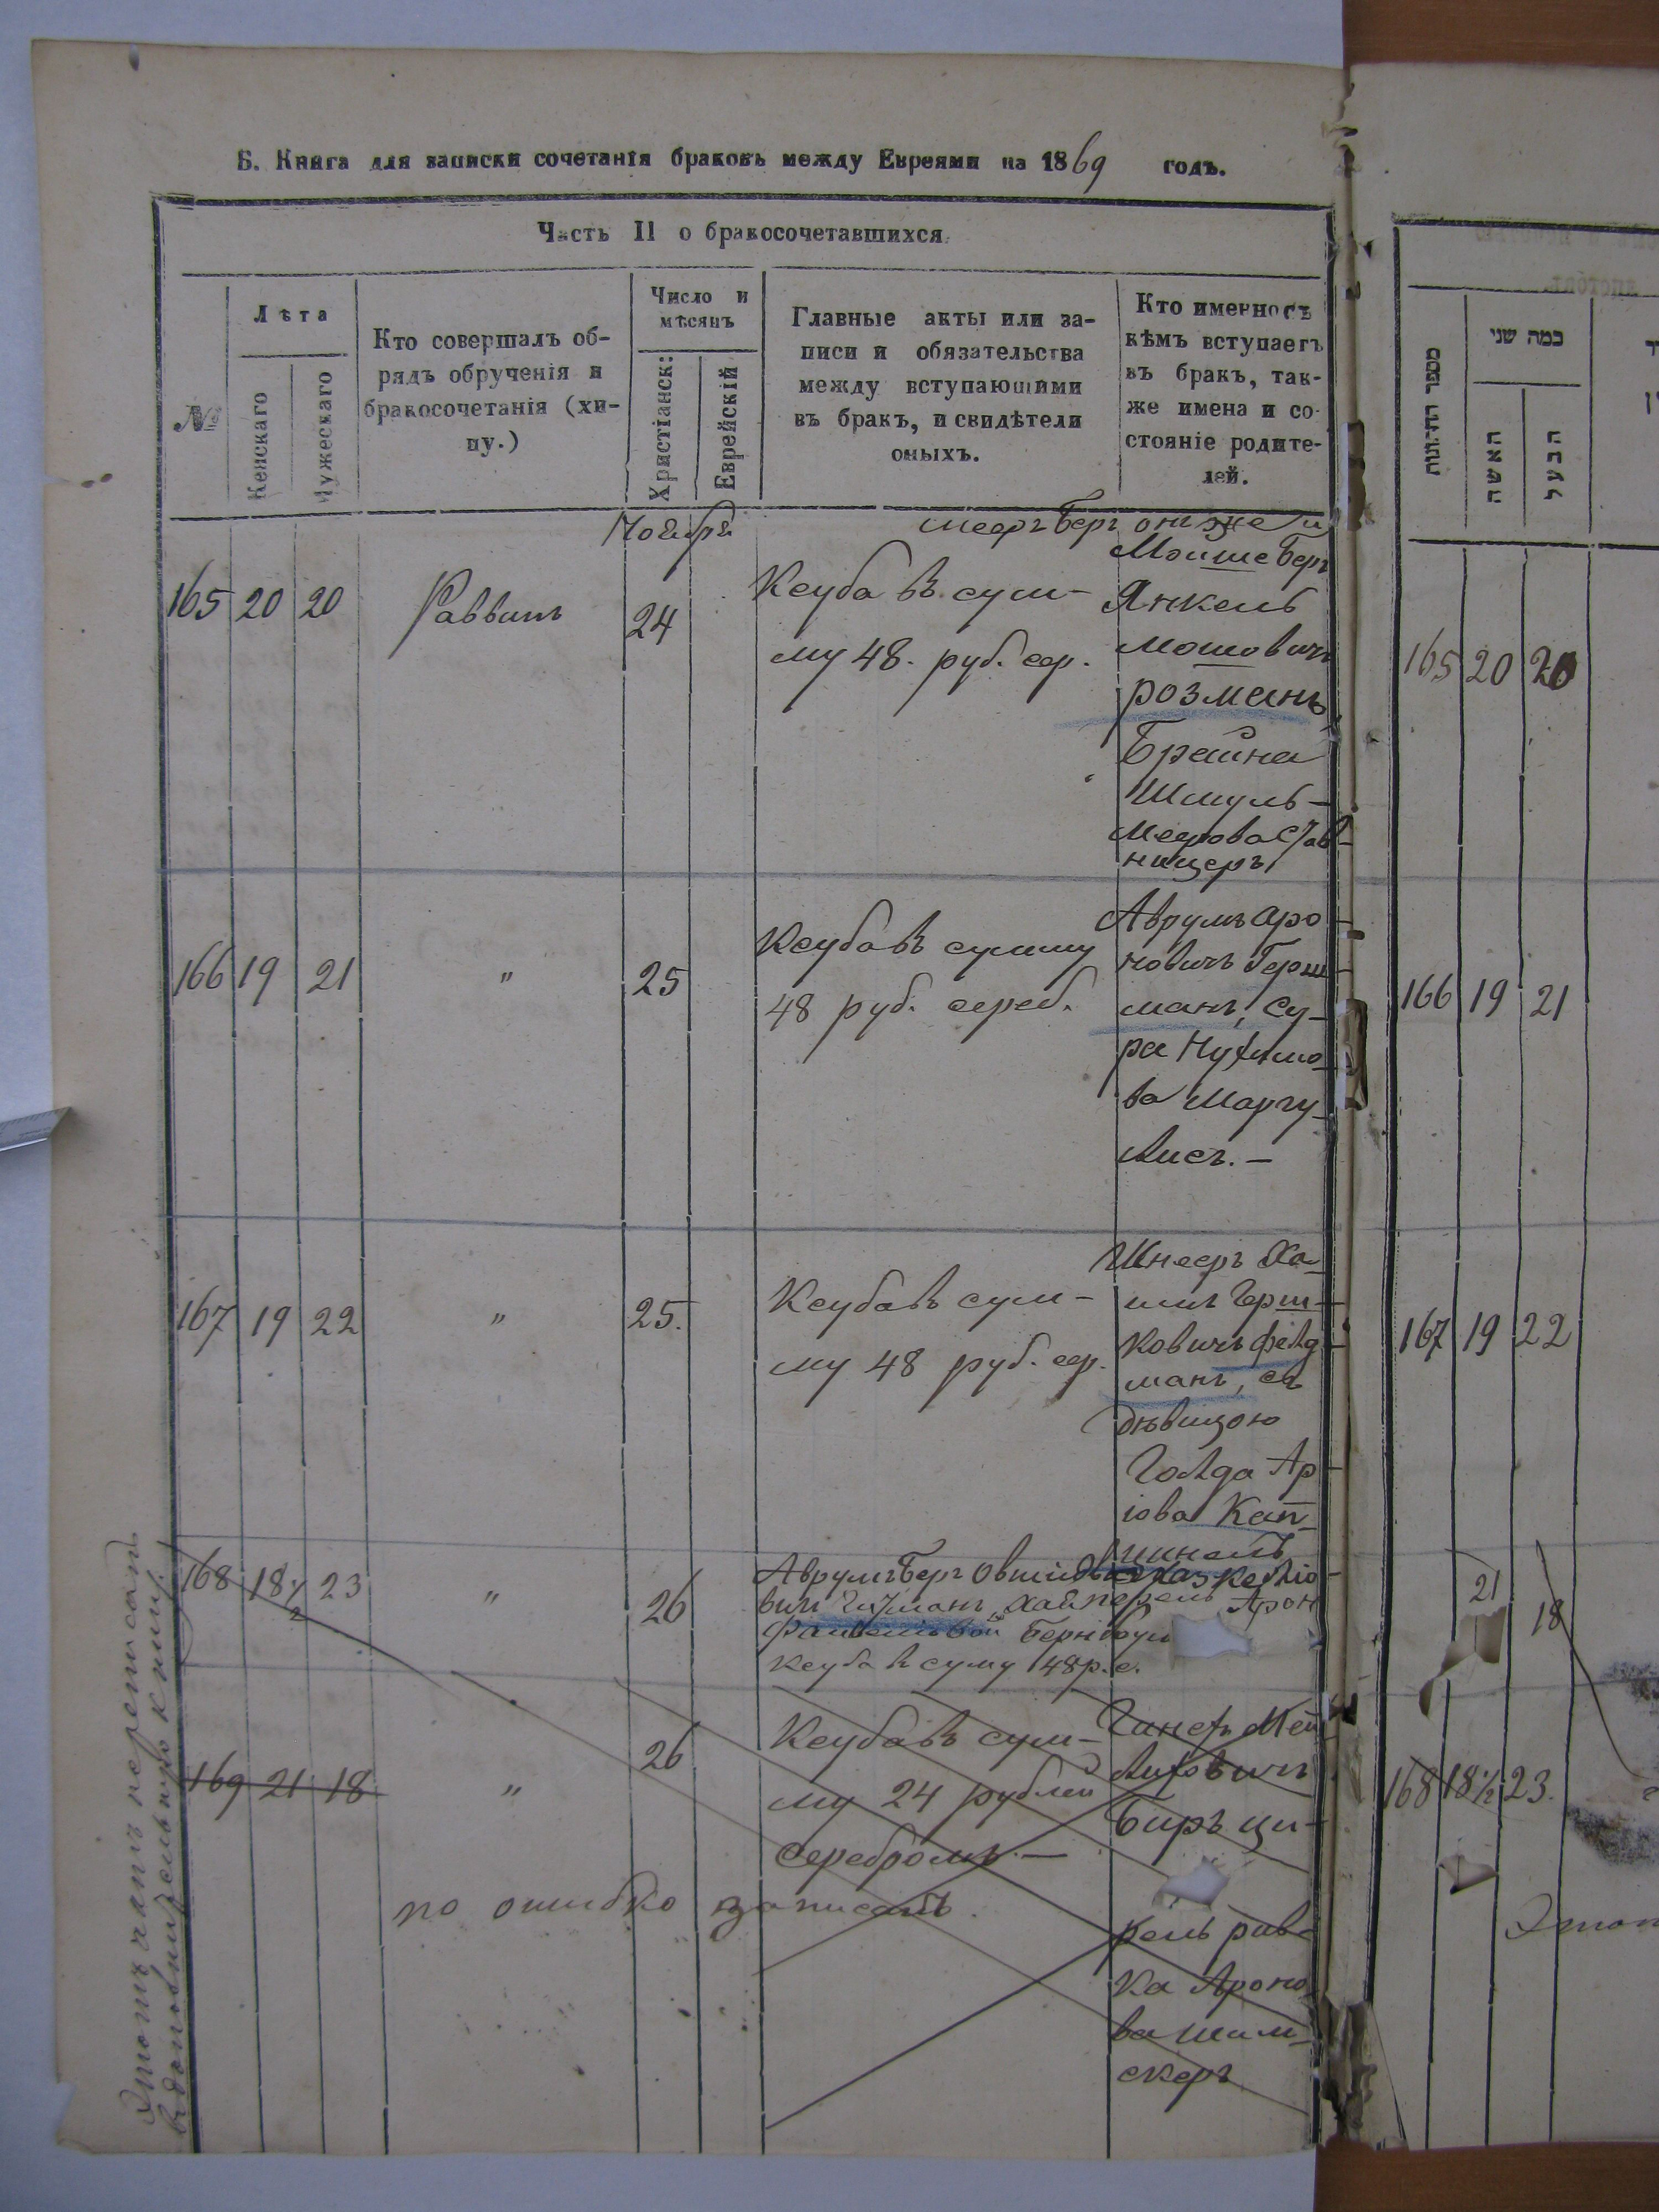 Б. Книга для записки сочетанія браковъ между Евреями на 1869 годъ.
Часть II о бракосочетавшихся.
№
Лѣта
Женскаго
Мужескаго
Кто совершалъ об-
рядъ обрученія и
бракосочетанія (хи-
пу.)
Число и
мѣсяцъ
Христіанск:
Еврейскій
Главные акты или за-
писи и обязательства
между вступающими
въ бракъ, и свидѣтели
оныхъ.
Кто именно съ
кѣмъ вступаетъ
въ бракъ, так-
же имена и со-
стояніе родите-
лей.
Ноября
165 20 20 Раввинъ 24
Ксуба въ сум-
му 48. руб. сер.
Мееръ Беръ онъ же и
Мошше Беръ
Янкель
Мошовичъ
розманъ
Брайна
Шмуль-
Меерова
ницеръ
166 19 21 " 25
Ксуба въ сумму
48 руб. сереб.
Аврумъ Аро-
новичъ Герш-
манъ, Су-
ра Нухимо-
ва Маргу-
лисъ. —
167 19 22 " 25.
Ксуба въ сум-
му 48 руб. сер.
Шнееръ Ха-
имъ Герш-
ковичъ Фелд-
манъ, съ
дѣвицою
Голда Ар-
іова Кап-
168 18½ 23 " 26
Аврумъ Беръ Овшій
вичъ Гитманъ
Ксуба въ суму 48 р. с.
169 21 18 " 26
Ксуба въ сум-
му 24 рублей
серебромъ. —
Мей-
ловичъ
Биръ
рель рив-
ка Ароно-
ва Шам-
скеръ
по ошибко записанъ.
Этотъ актъ переписанъ
въ дополнительную книгу.
מספר החתונות
כמה שני
האשה
הבעל
165 20 20
166 19 21
167 19 22
21 18
168 18½ 23.